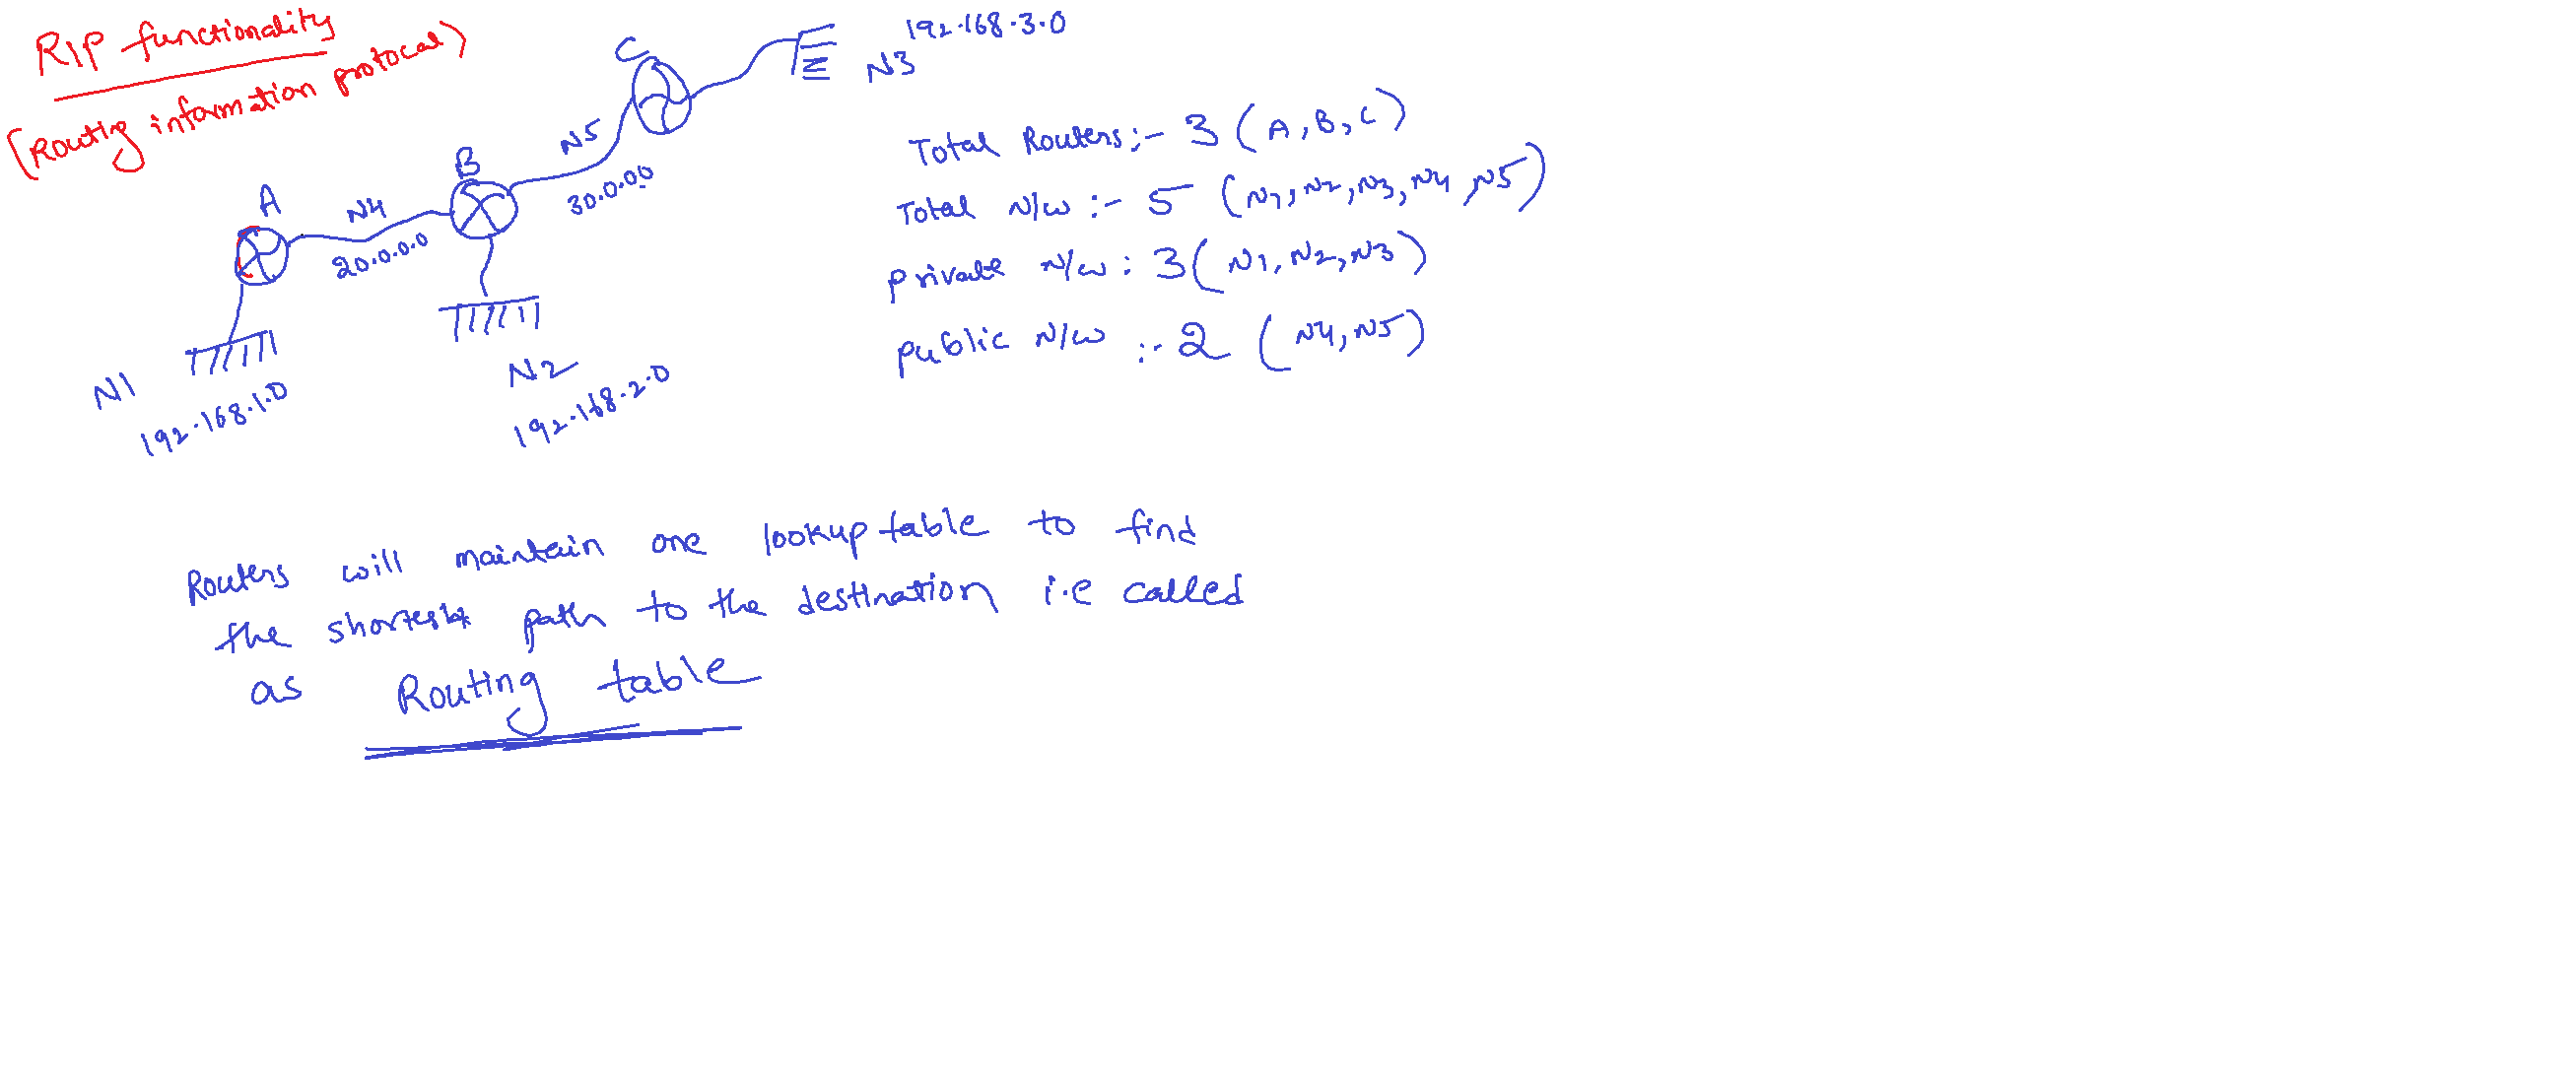 RIP functionality
(Routig information protocal)
192.168.3.0
N3
C
N5
30.0.0.0
B
A
N4
20.0.0.0
N1
192.168.1.0
N2
192.168.2.0
Total Routers :- 3 (A, B, C)
Total N/w :- 5 (N1, N2, N3, N4, N5)
private N/w : 3 (N1, N2, N3)
public N/w :- 2 (N4, N5)
Routers will maintain one lookup table to find
the shortest path to the destination i.e called
as Routing table